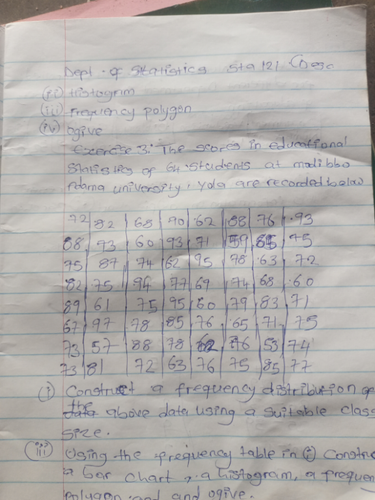 Dept. of Statistics Sta 121
(ii) Histogram
(iii) Frequency polygon
(iv) ogive
Exercise 3: The scores in educational
Statistics of 64 students at modibbo
Adama university, Yola are recorded below
72 82 68 90 62 88 76 93
88 73 60 93 71 59 85 75
75 87 74 62 95 78 63 72
82 75 94 77 69 74 68 60
89 61 75 95 60 79 83 71
67 97 78 85 76 65 71 75
73 57 88 78 62 76 53 74
73 81 72 63 76 75 85 77
(i) Construct a frequency distribution of
the above data using a suitable class
size.
(ii) Using the frequency table in (i) Constru
a bar chart, a histogram, a frequen
polygon and and ogive.